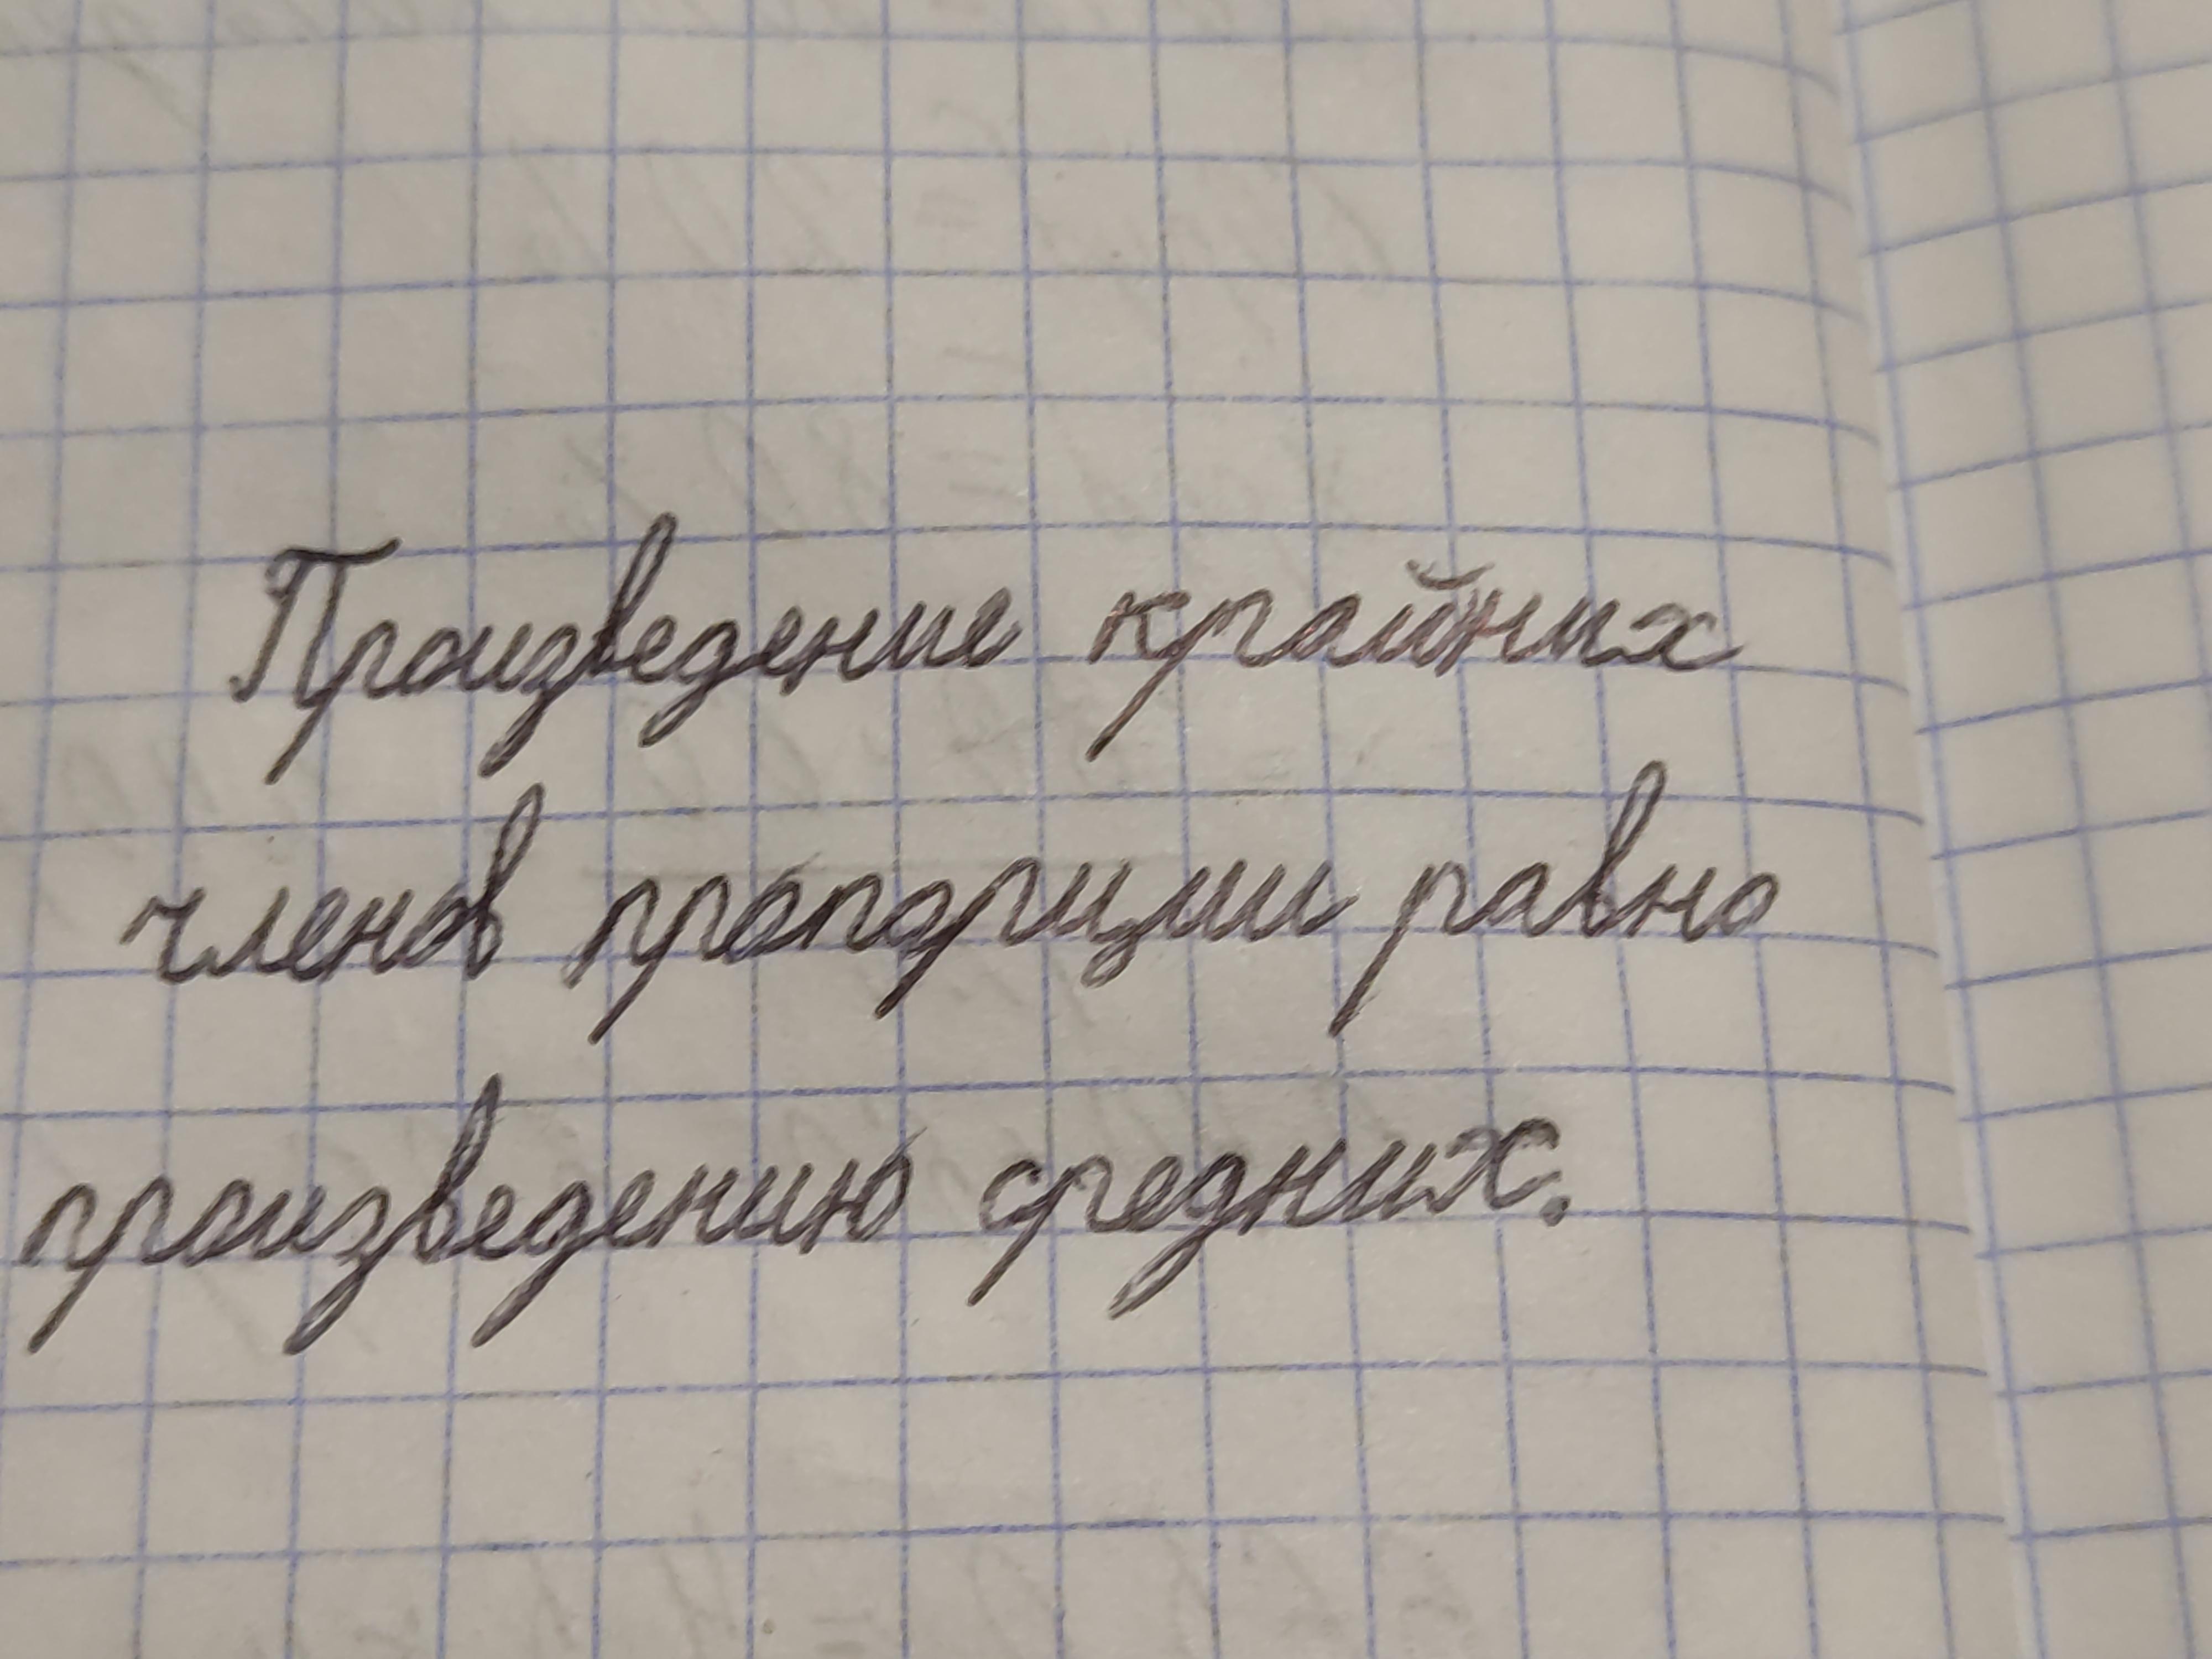 Произведение крайних
членов пропорции равно
произведению средних.